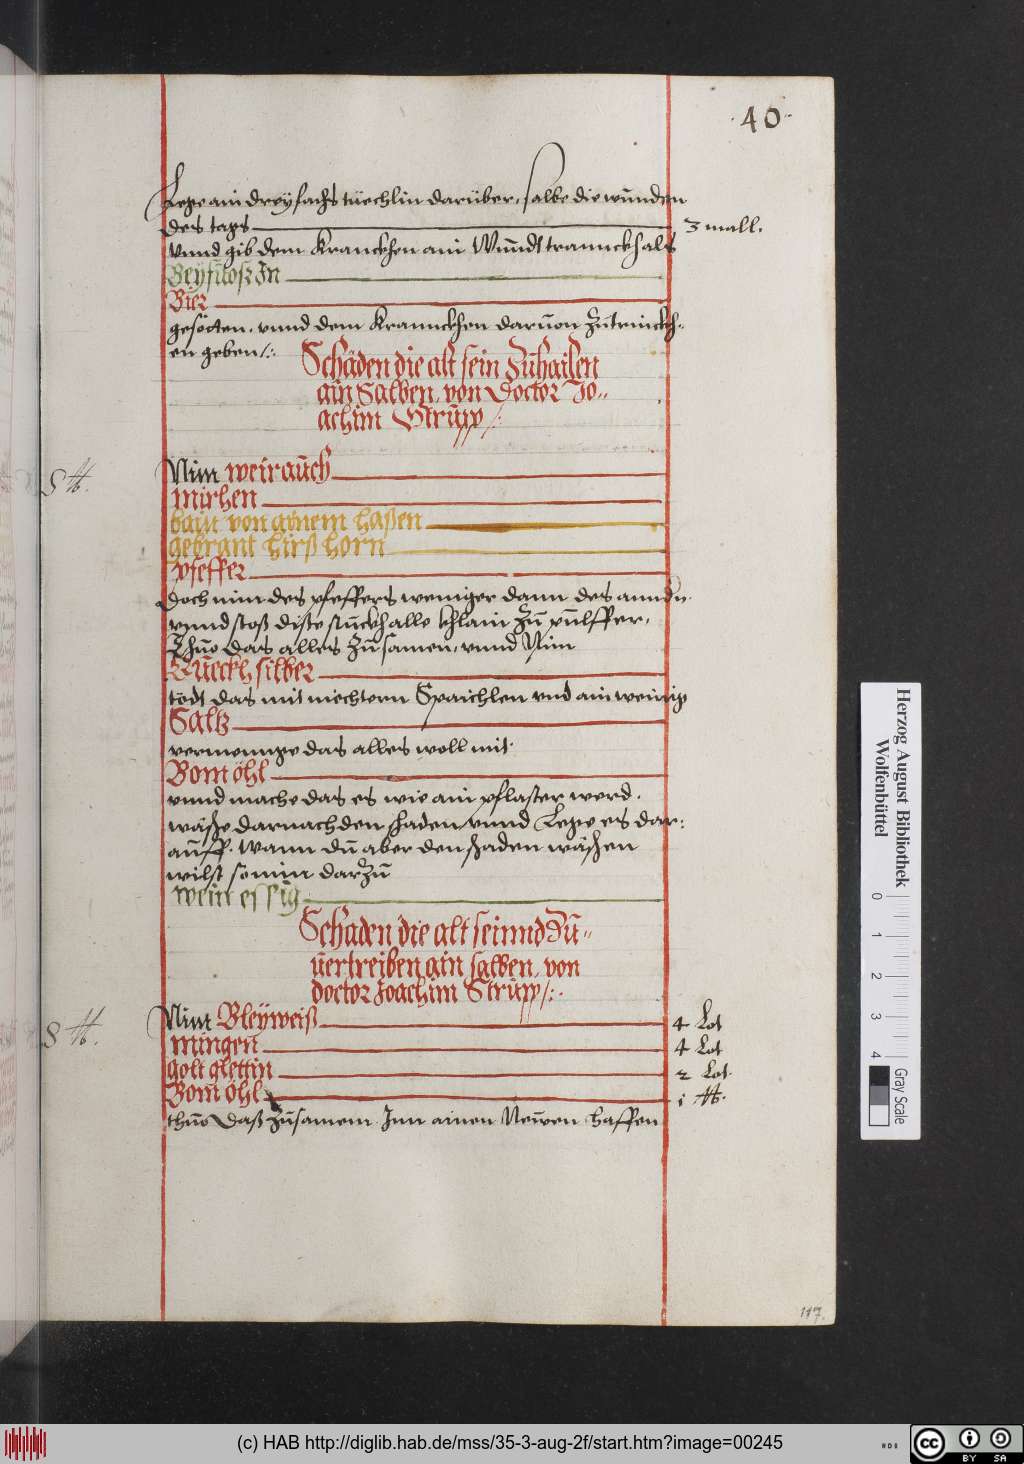 ·40·
Lege ain dreyfachs tüechlin darüber, salbe die wunden
des tags 3 mall.
vnnd gib dem Kranckhen ain Wunndt tranncksh als
Beyfuosz In
Bier
gesotten, vnnd dem Krannckhen daruon zu trinckh-
en geben /:
Schäden die alt sein Zuhailen
ain Salben, von Doctor Jo-
achim Strupp /:
S H.
Nim weirauch
mirhen
bain von ainem haßen
gebrant hirß horn
pfeffer
doch nim des pfeffers weniger dann des anndn.
vnnd stoß diße stuckh alle khlain zu pulffer,
Thuo das alles zu samen, vnnd Nim
Queckh silber
tödt das mit niechtern Spaichlen vnd ain wenig
Saltz
vermennge das alles woll mit
Bom öhl
vnnd mache das es wie ain pflaster werd.
wäsche darnach den schaden, vnnd Lege es dar:
auff. wann du aber den schaden wäschen
wilst so nim darzu
wein essig
Schaden die alt seinnd Zu-
uertreiben ain salben, von
doctor Joachim Strupp /:
S H.
Nim Bleyweiß 4 Lot
mingen 4 Lot
golt glettin 2 Lot.
Bom öhl i ℔.
thuo daß zusamem Inn ainen Newen haffen
117.
Herzog August Bibliothek
Wolfenbüttel
0 1 2 3 4
Gray Scale
(c) HAB http://diglib.hab.de/mss/35-3-aug-2f/start.htm?image=00245
cc BY SA